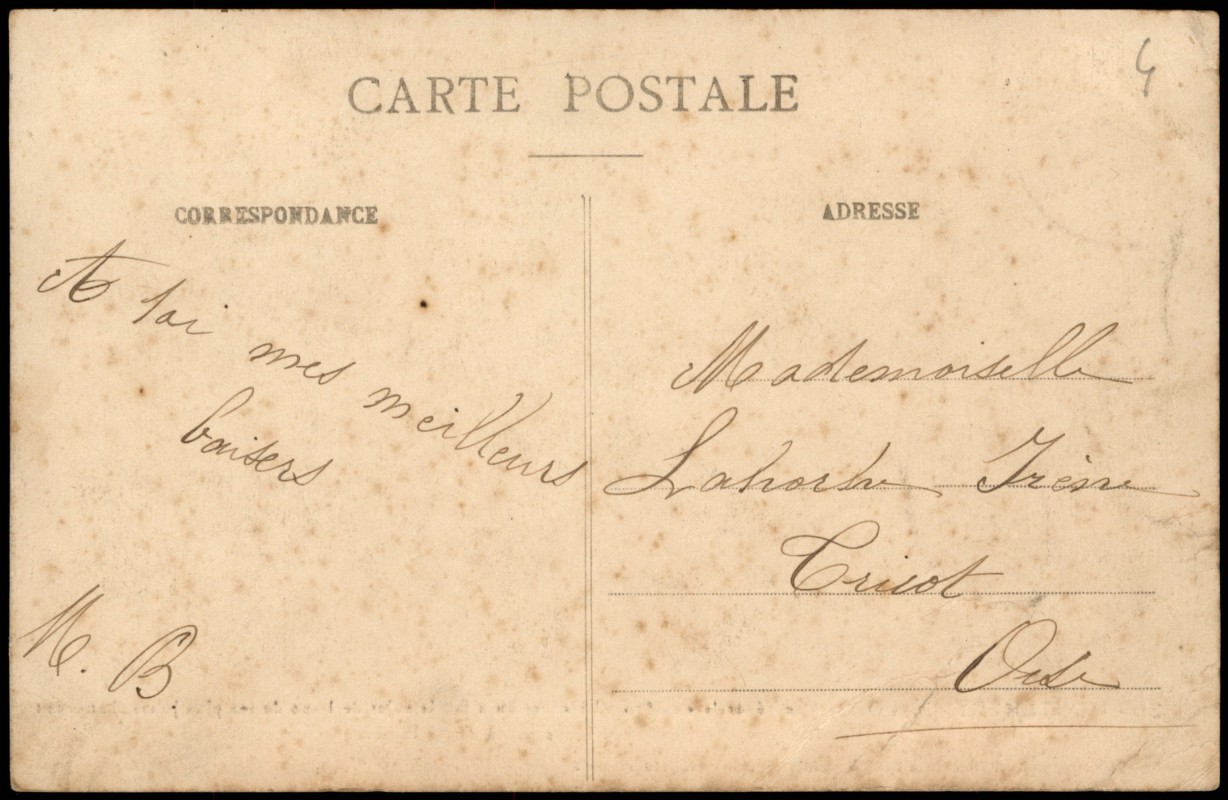 CARTE POSTALE
CORRESPONDANCE
A toi mes meilleurs
baisers
M. B
ADRESSE
Mademoiselle
Irène
Tricot
Oise